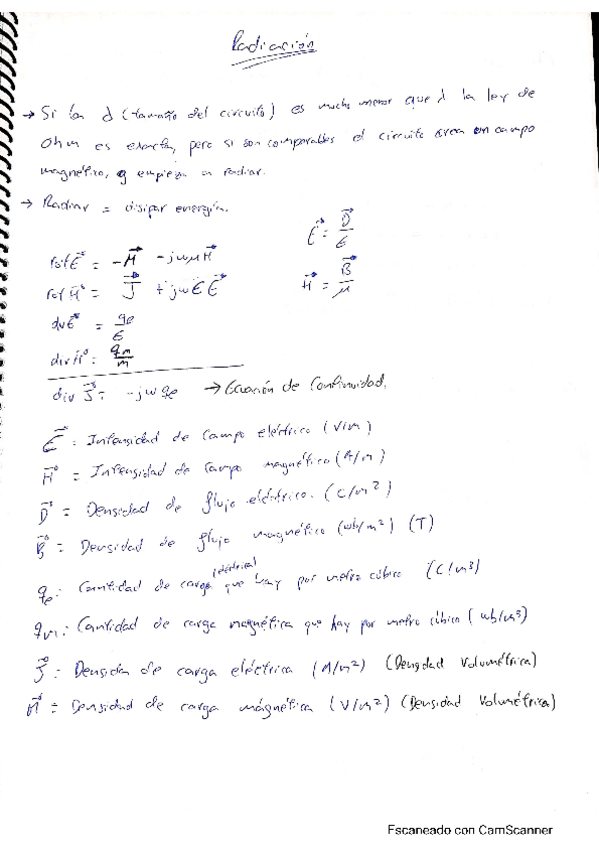 Radiación
→ Si la d (tamaño del circuito) es mucho menor que λ la ley de
Ohm es exacta, pero si son comparables el circuito crea un campo
magnético, y empieza a radiar.
→ Radiar = disipar energía.
rot E⃗ = -M⃗ - jωμH⃗
E⃗ = D⃗/ε
rot H⃗ = J⃗ + jωεE⃗
H⃗ = B⃗/μ
div E⃗ = qe/ε
div H⃗ = qm/m
div J⃗ = -jω qe → Ecuación de Continuidad.
E⃗ : Intensidad de campo eléctrico (V/m)
H⃗ = Intensidad de campo magnético (A/m)
D⃗ = Densidad de flujo eléctrico. (C/m²)
B⃗ = Densidad de flujo magnético (wb/m²) (T)
qe : Cantidad de carga (eléctrica) que hay por metro cúbico (C/m³)
qm : Cantidad de carga magnética que hay por metro cúbico (wb/m³)
J⃗ : Densidad de carga eléctrica (A/m²) (Densidad Volumétrica)
M⃗ = Densidad de carga magnética (V/m²) (Densidad Volumétrica)
Escaneado con CamScanner